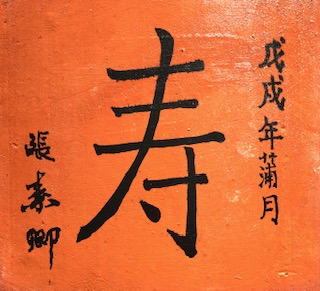 戊戌年蒲月
寿
張素卿